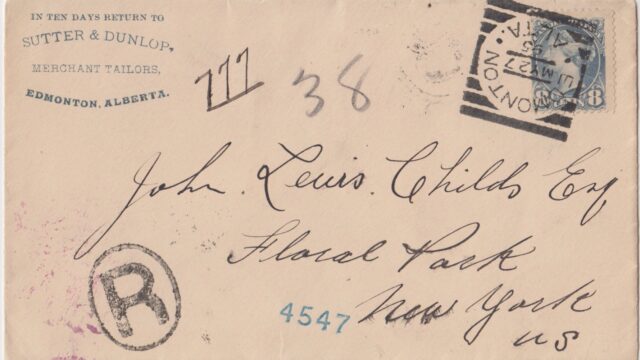 IN TEN DAYS RETURN TO
SUTTER & DUNLOP,
MERCHANT TAILORS,
EDMONTON, ALBERTA.
777
38
EDMONTON
MY 27
95
ALTA.
8
John Lewis Childs Esq
Floral Park
New York
US
R
4547